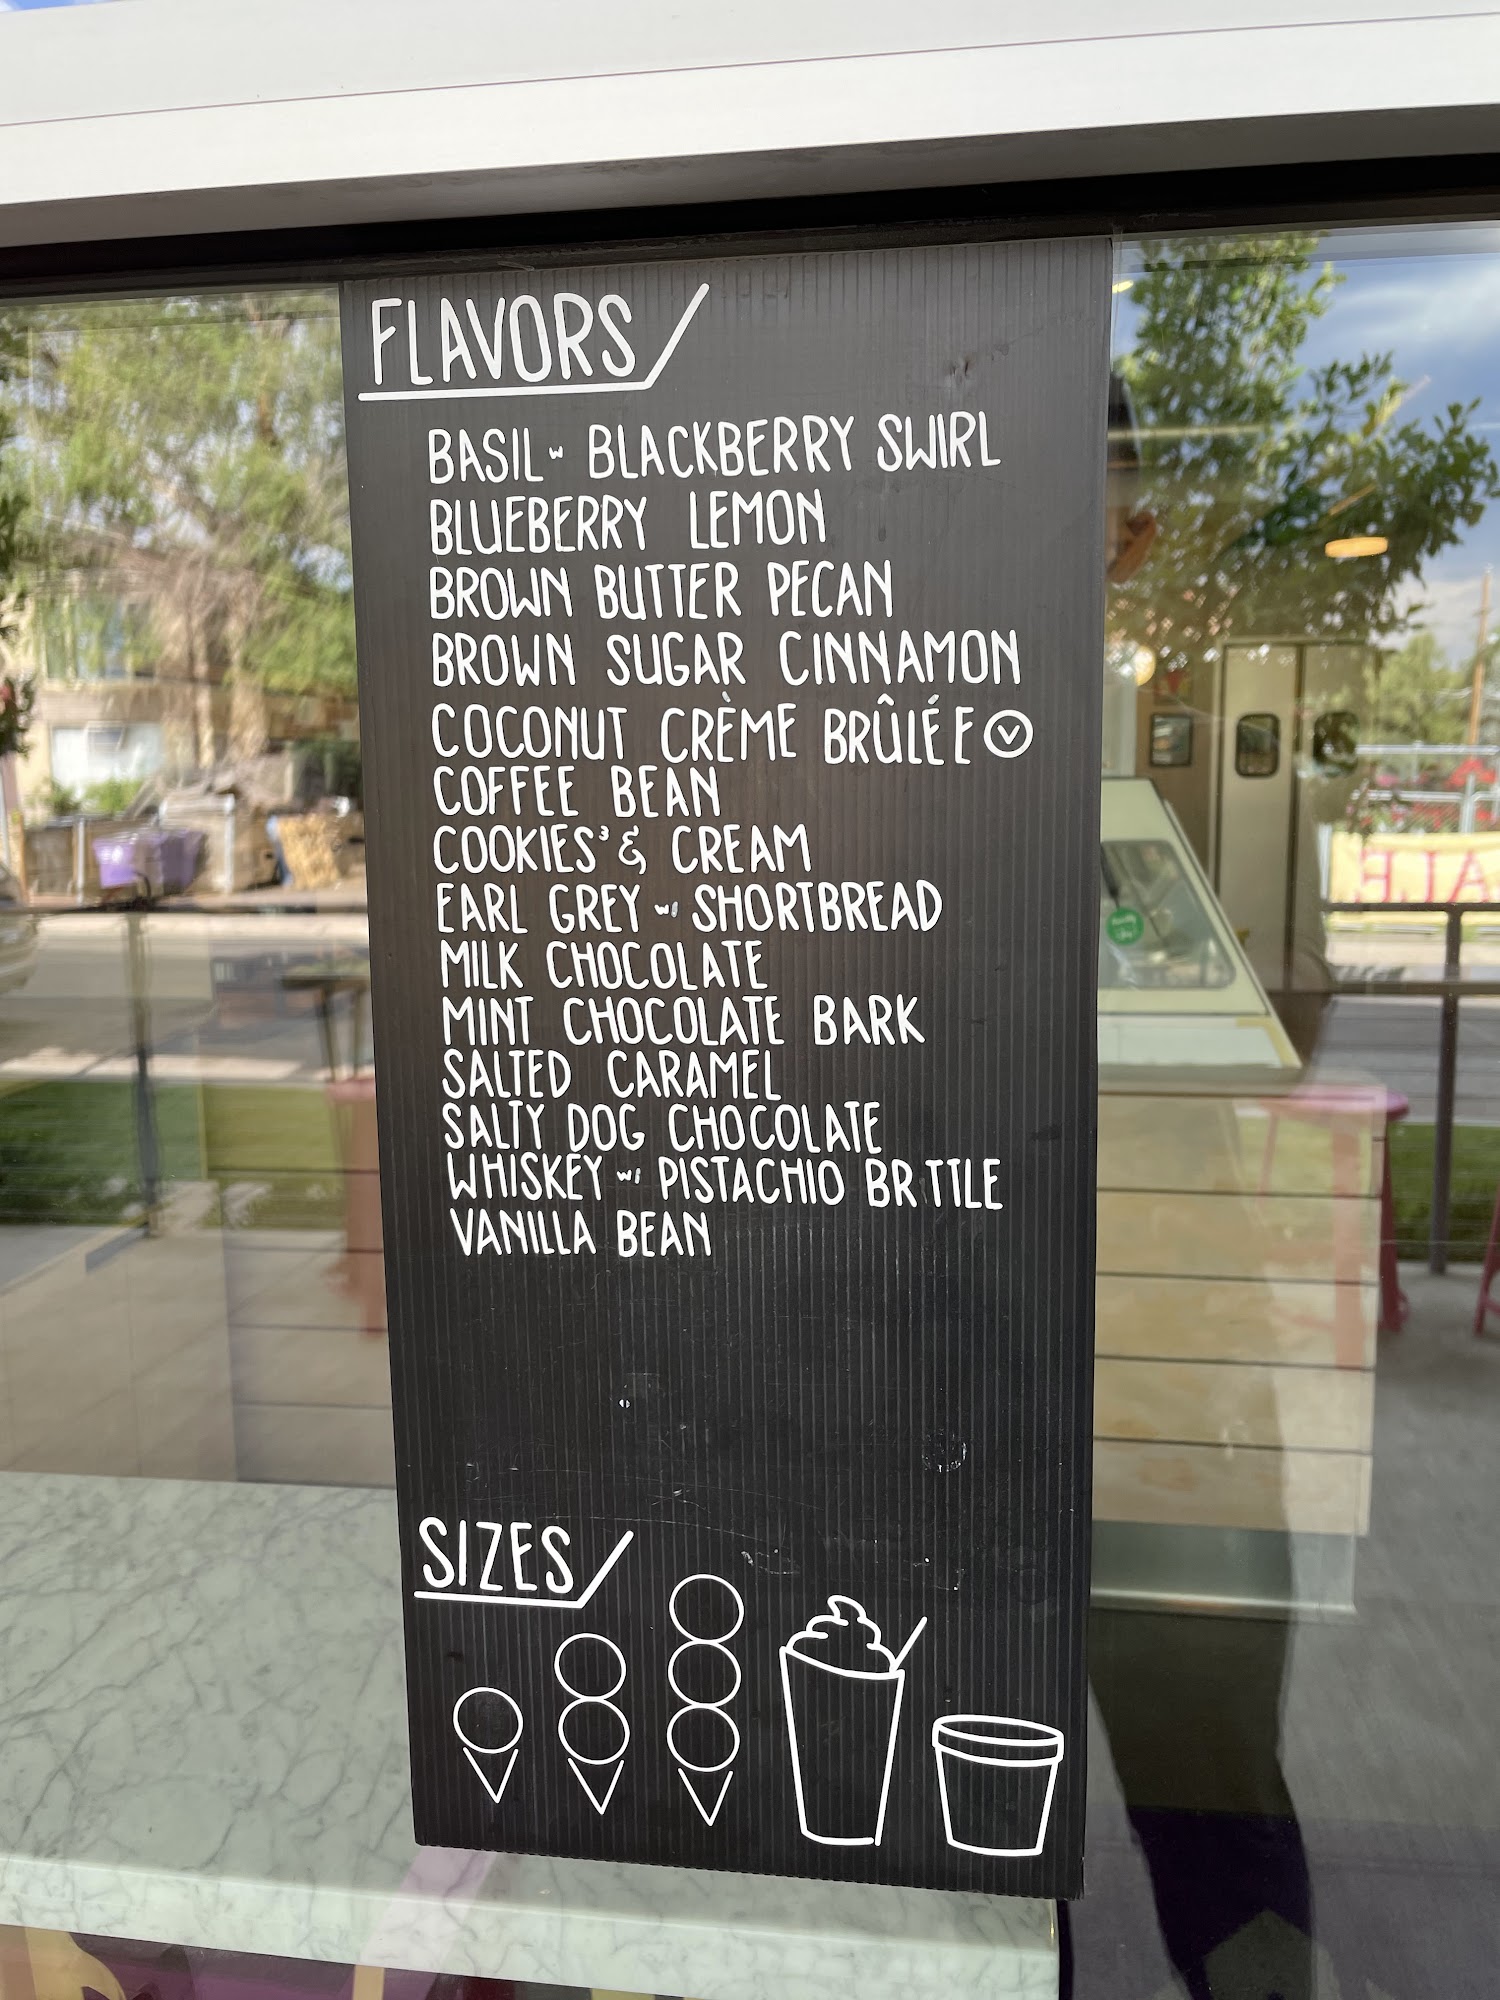 FLAVORS
BASIL w BLACKBERRY SWIRL
BLUEBERRY LEMON
BROWN BUTTER PECAN
BROWN SUGAR CINNAMON
COCONUT CRÈME BRÛLÉE V
COFFEE BEAN
COOKIES³ & CREAM
EARL GREY w/ SHORTBREAD
MILK CHOCOLATE
MINT CHOCOLATE BARK
SALTED CARAMEL
SALTY DOG CHOCOLATE
WHISKEY w/ PISTACHIO BR TTLE
VANILLA BEAN
SIZES